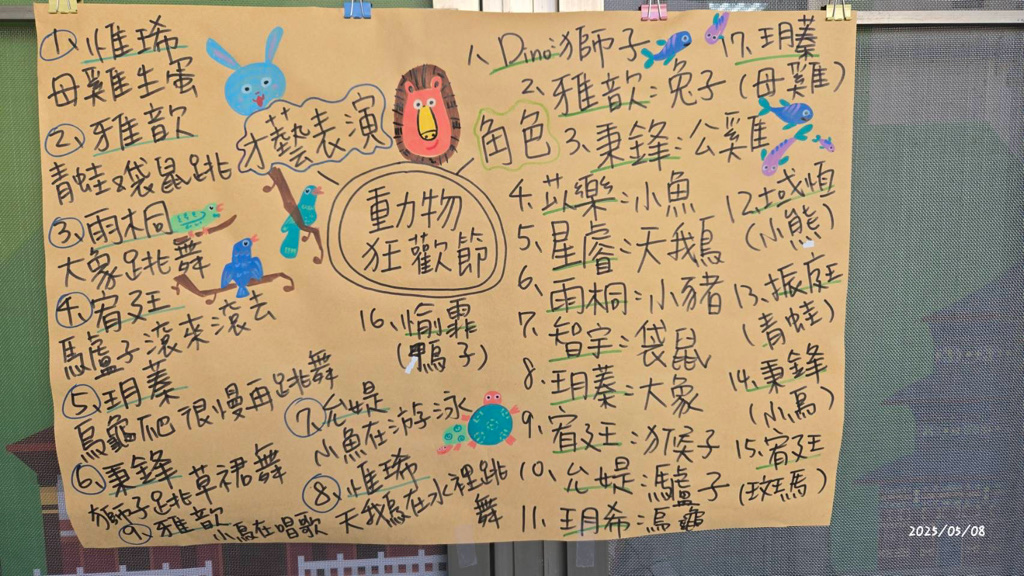 動物
狂歡節
才藝表演
①惟琋
母雞生蛋
②雅歆
青蛙&袋鼠跳
③雨桐
大象跳舞
④宥廷
驢子滾來滾去
⑤玥蓁
烏龜爬很慢再跳舞
⑥秉鋒
獅子跳草裙舞
⑦允媞
小魚在游泳
⑧惟琋
天鵝在水裡跳
舞
⑨雅歆
小鳥在唱歌
角色
1. Dino:獅子
2. 雅歆:兔子
3. 秉鋒:公雞
4. 苡樂:小魚
5. 星睿:天鵝
6. 雨桐:小豬
7. 智宇:袋鼠
8. 玥蓁:大象
9. 宥廷:猴子
10. 允媞:驢子
11. 玥希:烏龜
12. 域恒
(小熊)
13. 振庭
(青蛙)
14. 秉鋒
(小鳥)
15. 宥廷
(斑馬)
16. 愉霏
(鴨子)
17. 玥蓁
(母雞)
2025/05/08